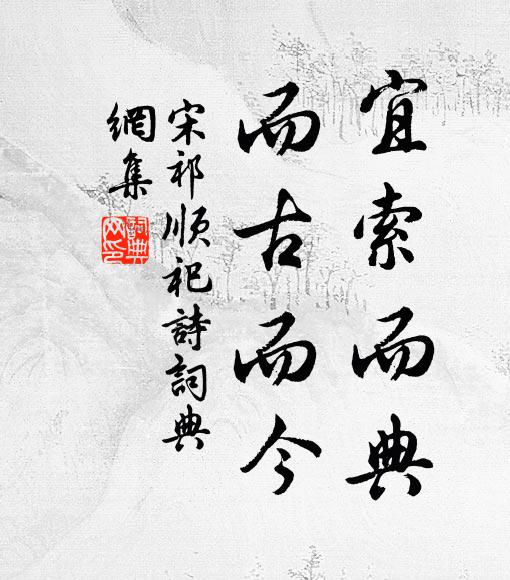 宜索而典
而古而今
宋祁順祀詩詞典
網集
詞典網印